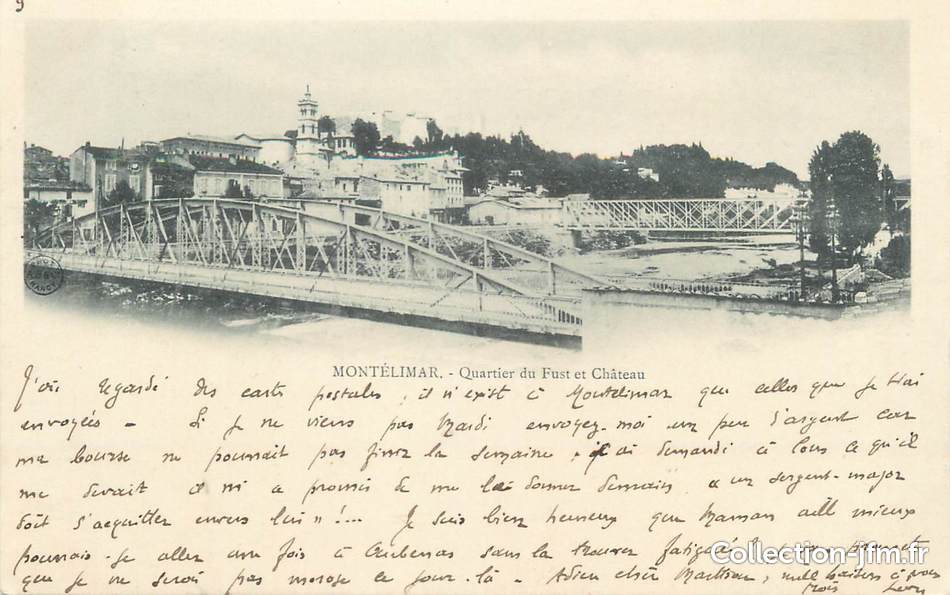 MONTÉLIMAR. - Quartier du Fust et Château
J'ai regardé des carte postales, il n'exist à Montélimar que celles que je t'ai
envoyées - Si je ne viens pas Mardi envoyez-moi un peu d'argent car
ma bourse ne pourrait pas finir la semaine, j'ai demandé à Louis ce qu'il
me devait il m'a promis de me le donner demain " un sergent-major
doit s'acquitter envers lui " !... Je suis bien heureux que Maman aille mieux
pourrais-je aller une fois à Aubenas sans la trouver fatiguée
Collection-jfm.fr
que je ne serai pas morose ce jour-là - Adieu mille baisers à vous
trois